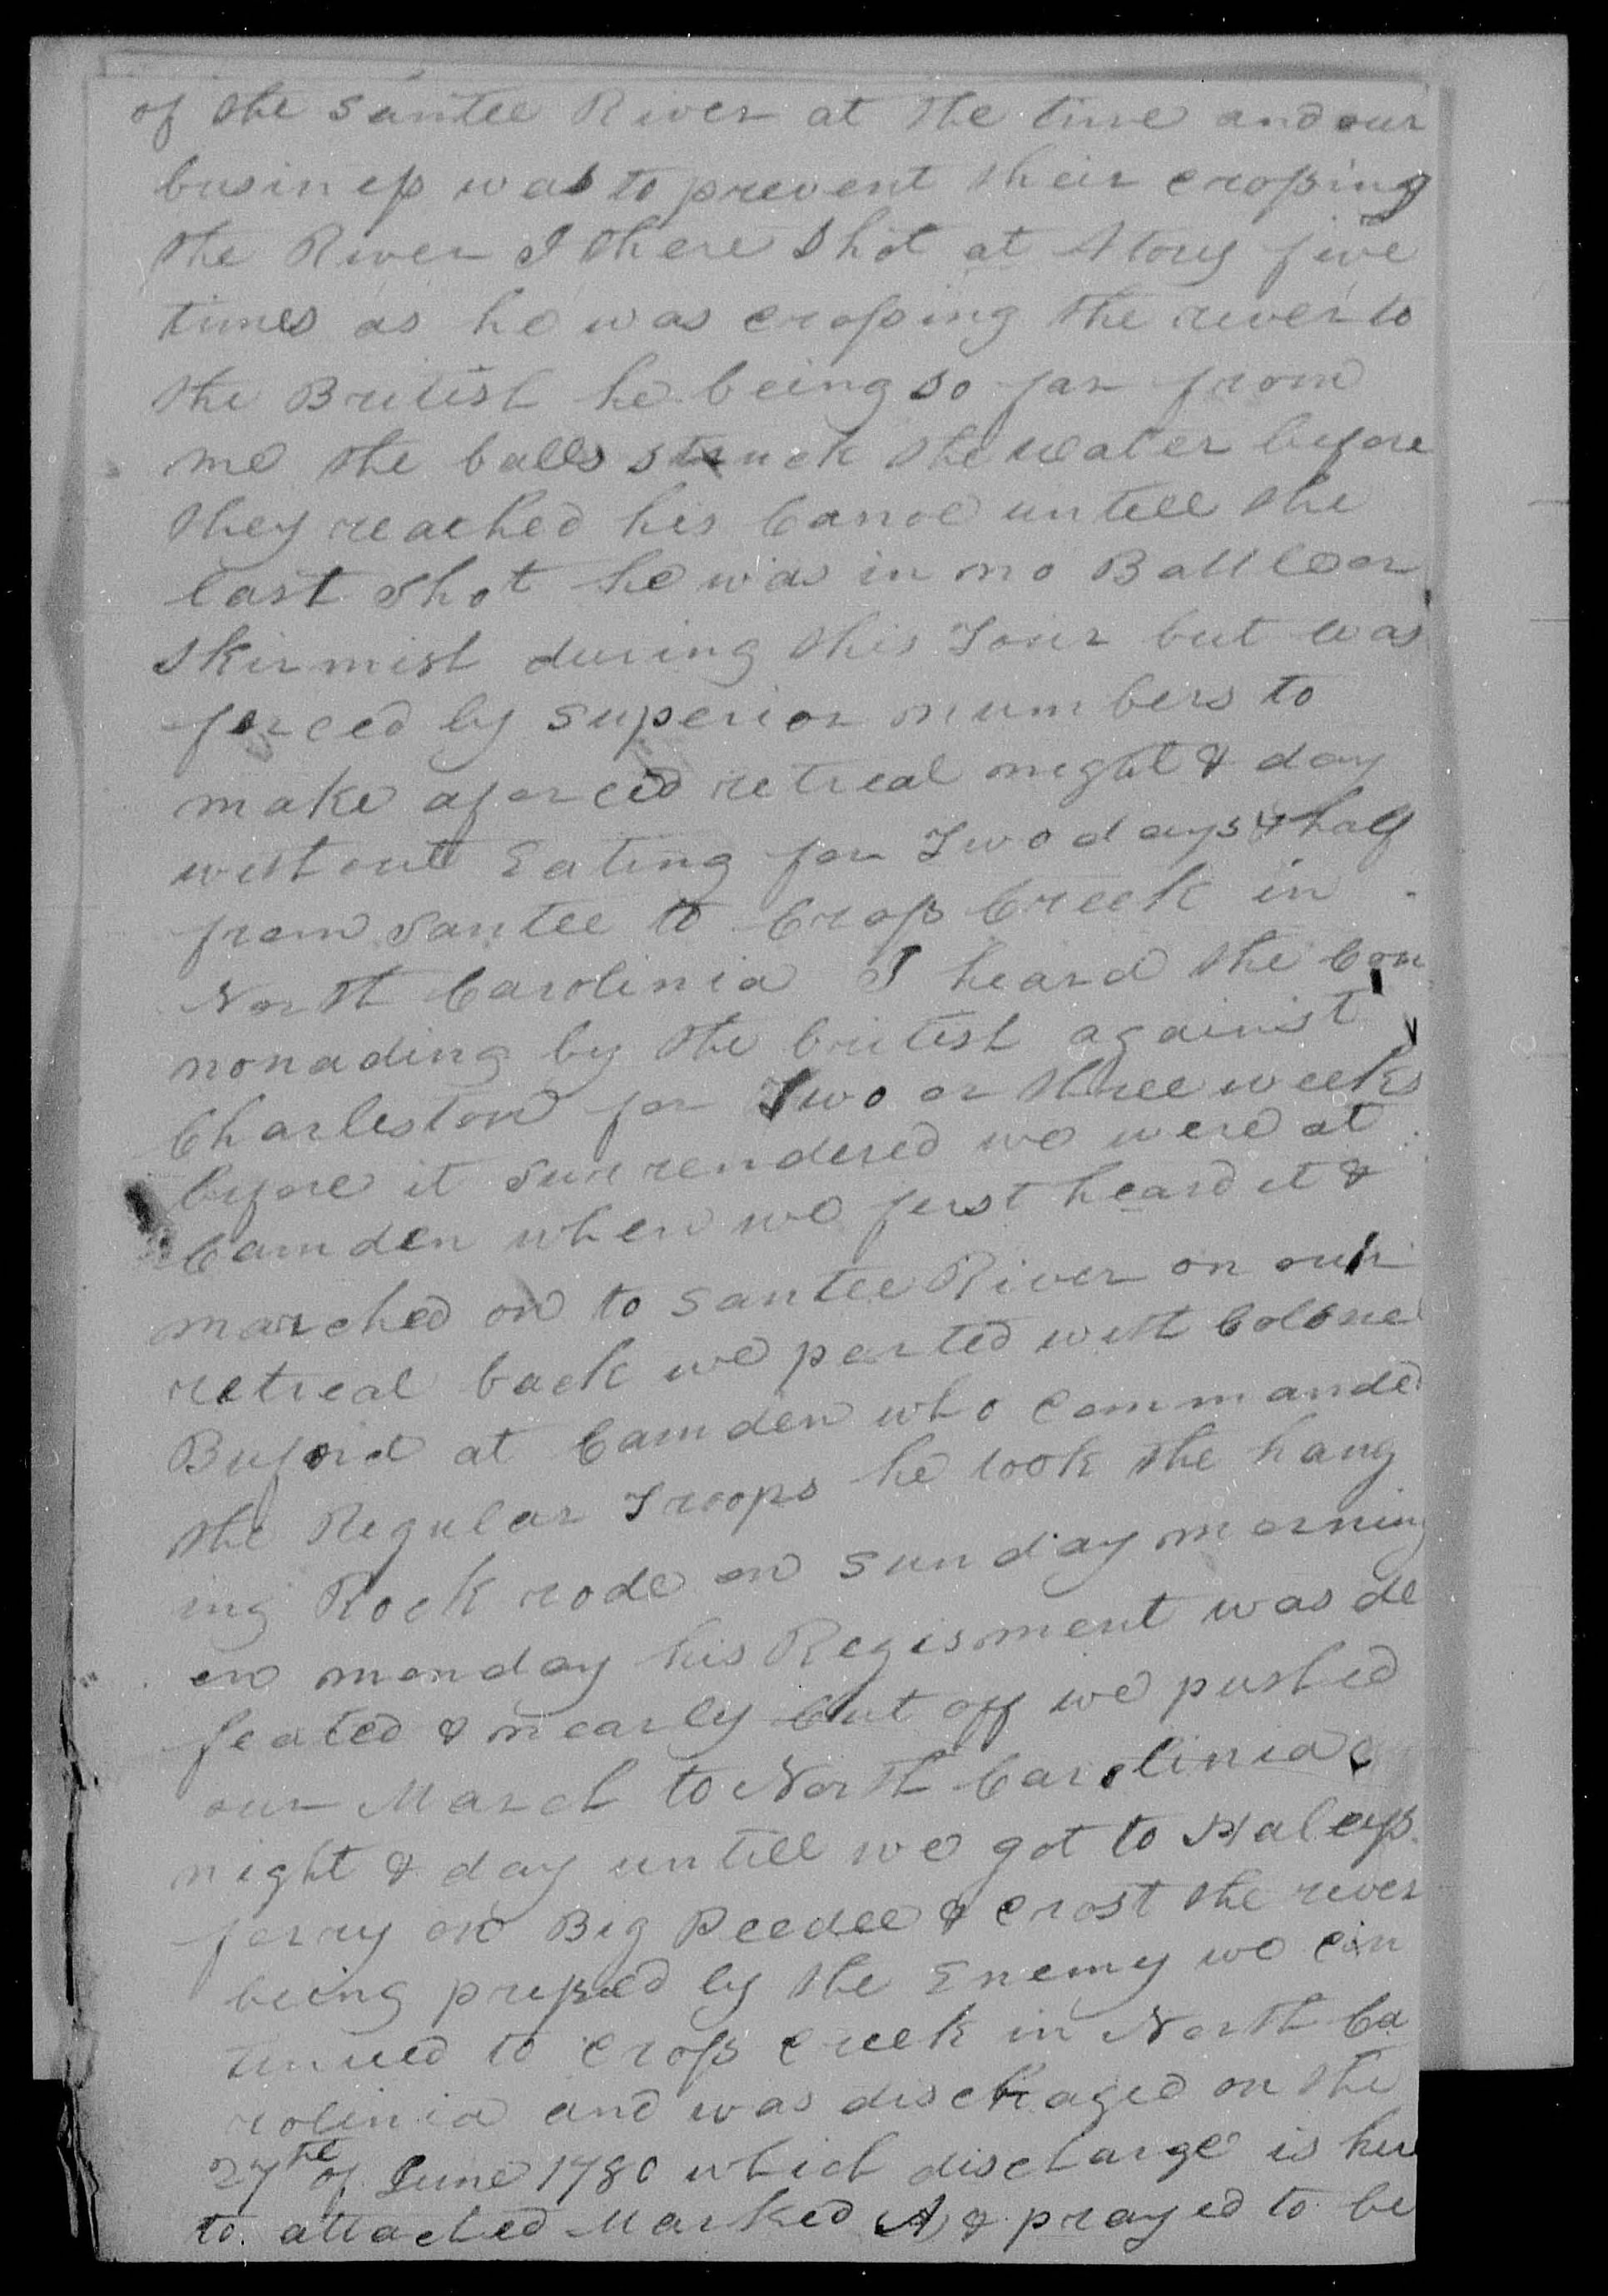 of the Santee River at the time and our
business was to prevent their crossing
the River I there Shot at A tory five
times as he was crossing the river to
the British he being so far from
me the balls struck the water before
they reached his Canoe untill the
last shot he was in no Battle or
Skirmish during this Tour but was
forced by superior numbers to
make a forced retreat night & day
without Eating for Two days & half
from Santee to Cross Creek in
North Carolinia I heard the Can
nonading by the british against
Charleston for Two or three weeks
before it surrendered we were at
Camden when we first heard it &
marched on to Santee River on our
retreat back we parted with Colonel
Buford at Camden who commanded
the Regular Troops he took the hang
ing Rock rode on Sunday morning
on monday his Regisment was de
feated & nearly Cut off we pushed
our March to North Carolinia
night & day untill we got to Haleys
ferry on Big Peedee & crost the river
being pressed by the Enemy we con
tinued to Cross creek in North Ca
rolinia and was dischaged on the
27th of June 1780 which discharge is here
to attached Marked A & prayed to be